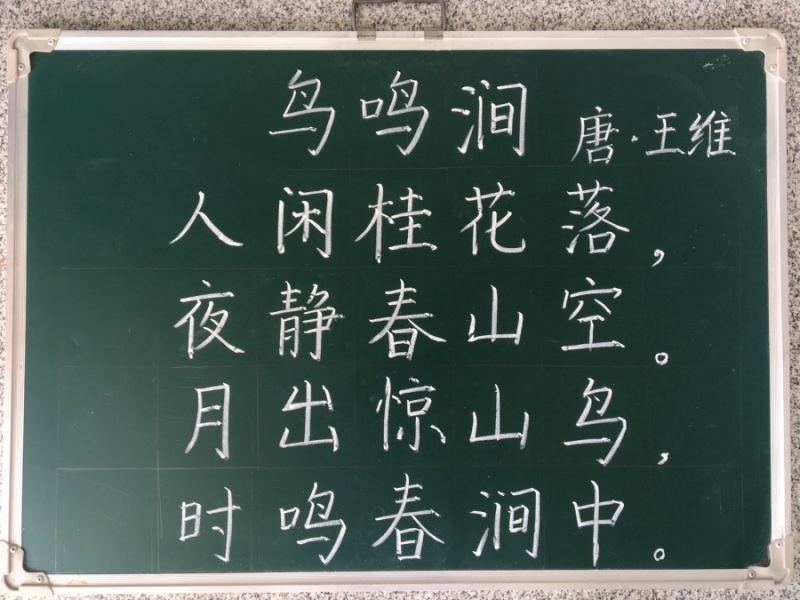 鸟鸣涧 唐·王维
人闲桂花落，
夜静春山空。
月出惊山鸟，
时鸣春涧中。